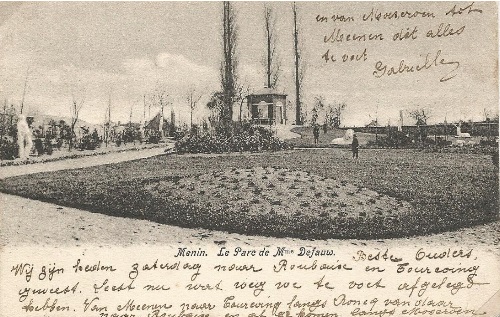 en van Moescroen tot
Meenen dat alles
te voet
Gabrielle
Menin. Le Parc de Mme Defauw.
Beste Ouders,
Wij zijn heden zaterdag naar Roubaise en Tourcoing
geweest. Leest nu wat weg we te voet afgelegd
hebben. Van Meenen naar Tourcoing langs Roncq van daar
naar Roubaise en at ge komen langs Moscroen